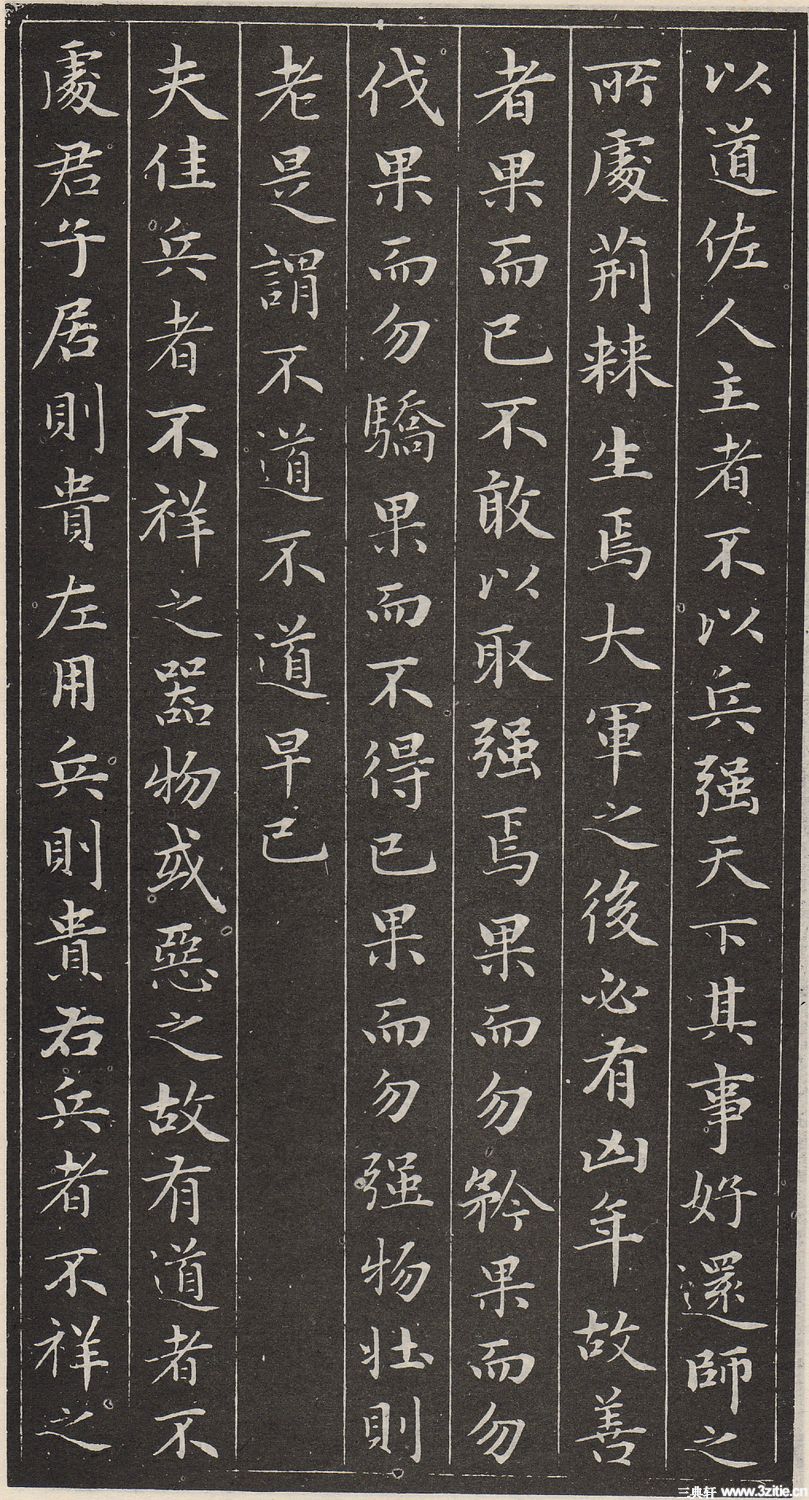 以道佐人主者不以兵强天下其事好還師之
所處荆棘生焉大軍之後必有凶年故善
者果而已不敢以取强焉果而勿矜果而勿
伐果而勿驕果而不得已果而勿强物壯則
老是謂不道不道早已
夫佳兵者不祥之器物或惡之故有道者不
處君子居則貴左用兵則貴右兵者不祥之
三典轩 www.3zitie.cn